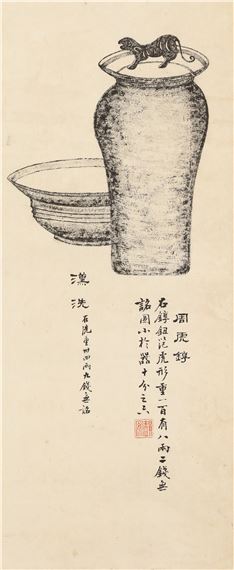 周虎錞
右錞鈕范虎形重一百有八兩二錢無
銘圖小於器十分之六
漢洗
右洗重卌四兩九錢無銘